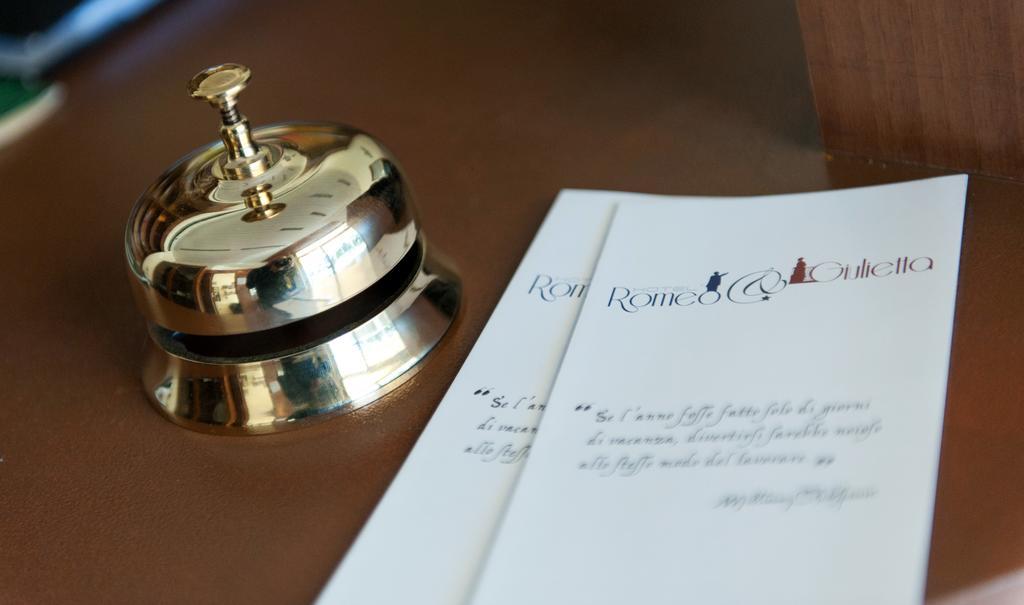 HOTEL
Rom
“ Se l'an
di vacan
allo steſſ
HOTEL
Romeo & Giulietta
“ Se l'anno foſſe fatto ſolo di giorni
di vacanza, divertirſi ſarebbe noioſo
allo ſteſſo modo del lavorare. ”